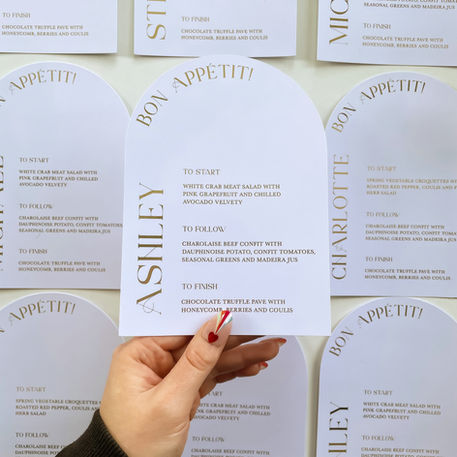 TO FINISH
CHOCOLATE TRUFFLE PAVE WITH
HONEYCOMB, BERRIES AND COULIS
TO FINISH
CHOCOLATE TRUFFLE PAVE WITH
HONEYCOMB, BERRIES AND COULIS
SEASONAL GREENS AND MADEIRA JUS
TO FINISH
CHOCOLATE TRUFFLE PAVE WITH
HONEYCOMB, BERRIES AND COULIS
BON APPÉTIT!
TO START
WHITE CRAB MEAT SALAD WITH
PINK GRAPEFRUIT AND CHILLED
AVOCADO VELVETY
TO FOLLOW
CHAROLAISE BEEF CONFIT WITH
DAUPHINOISE POTATO, CONFIT TOMATOES,
SEASONAL GREENS AND MADEIRA
TO FINISH
CHOCOLATE TRUFFLE PAVE WITH
HONEYCOMB, BERRIES AND COULIS
BON APPÉTIT!
ASHLEY
TO START
WHITE CRAB MEAT SALAD WITH
PINK GRAPEFRUIT AND CHILLED
AVOCADO VELVETY
TO FOLLOW
CHAROLAISE BEEF CONFIT WITH
DAUPHINOISE POTATO, CONFIT TOMATOES,
SEASONAL GREENS AND MADEIRA JUS
TO FINISH
CHOCOLATE TRUFFLE PAVE WITH
HONEYCOMB, BERRIES AND COULIS
BON APPÉTIT!
CHARLOTTE
TO START
SPRING VEGETABLE CROQUETTES
ROASTED RED PEPPER, COULIS AND
HERB SALAD
TO FOLLOW
CHAROLAISE BEEF CONFIT WITH
DAUPHINOISE POTATO, CONFIT
SEASONAL GREENS AND MADEIRA
TO FINISH
CHOCOLATE TRUFFLE PAVE WITH
HONEYCOMB, BERRIES AND COULIS
BON APPÉTIT!
TO START
SPRING VEGETABLE CROQUETTES
ROASTED RED PEPPER, COULIS
HERB SALAD
TO FOLLOW
CHAROLAISE BEEF CONFIT WITH
TO START
WHITE CRAB MEAT SALAD WITH
PINK GRAPEFRUIT AND CHILLED
AVOCADO VELVETY
TO FOLLOW
CHAROLAISE BEEF CONFIT WITH
BON APPÉTIT!
TO START
WHITE CRAB MEAT SALAD WITH
PINK GRAPEFRUIT AND CHILLED
AVOCADO VELVETY
TO FOLLOW
CHAROLAISE BEEF CONFIT WITH